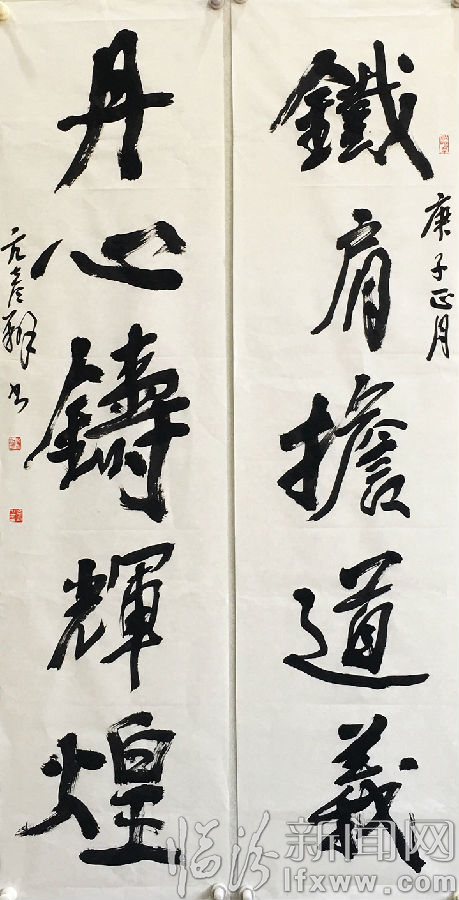 鐵肩擔道義
庚子正月
丹心鑄輝煌
亢彦
書
临汾新闻网
lfxww.com